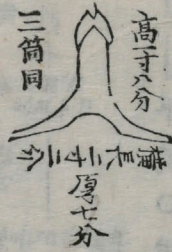 高一寸八分
三箇同
横長二寸三分
厚七分